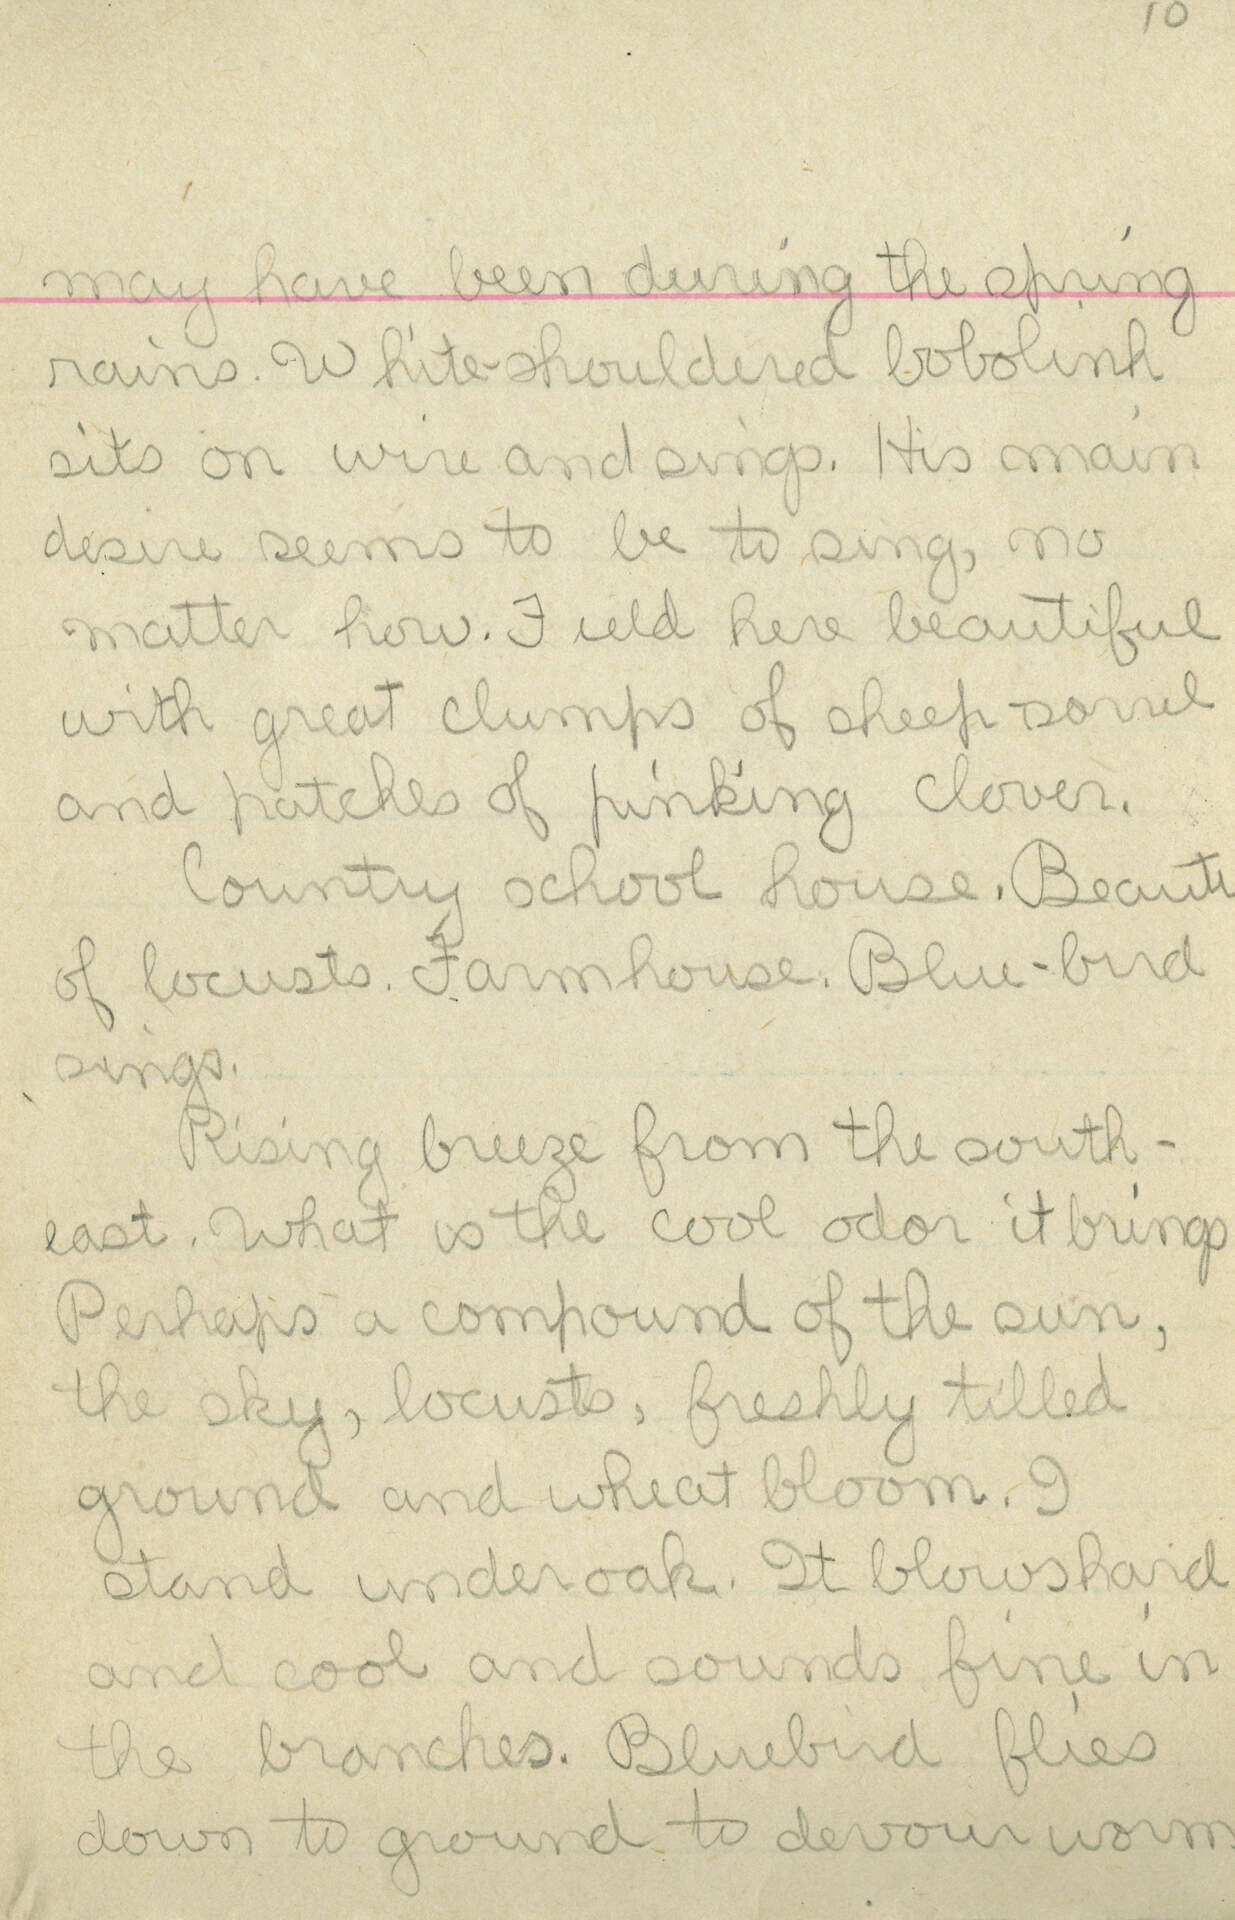 10
may have been during the spring
rains. White-shouldered bobolink
sits on wire and sings. His main
desire seems to be to sing, no
matter how. Field here beautiful
with great clumps of sheep-sorrel
and patches of pinking clover.
Country school house. Beauti
of locusts. Farmhouse. Blue-bird
sings.
Rising breeze from the south-
east. What is the cool odor it brings
Perhaps a compound of the sun,
the sky, locusts, freshly tilled
ground and wheat bloom. I
stand under oak. It blows hard
and cool and sounds fine in
the branches. Bluebird flies
down to ground to devour worm